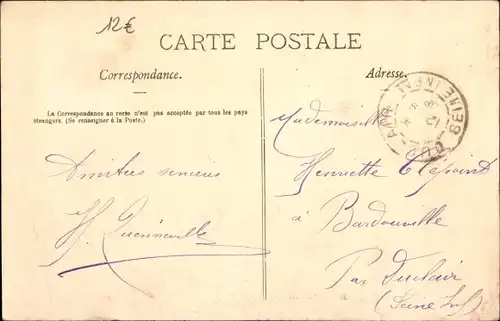 12€
CARTE POSTALE
Correspondance.
Adresse.
La Correspondance au recto n'est pas acceptée par tous les pays
étrangers. (Se renseigner à la Poste.)
Mademoiselle
Henriette
à
Bardouville
Par Duclair
(Seine Inf)
Amitiés sincères
H. Quenneville
SEINE INF